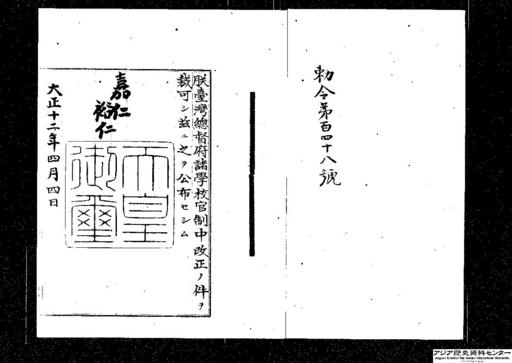 勅令第百四十八號
朕臺灣總督府諸學校官制中改正ノ件ヲ
裁可シ茲ニ之ヲ公布セシム
嘉仁
裕仁
天皇
御璽
大正十二年四月四日
アジア歴史資料センター
Japan Center for Asian Historical Records